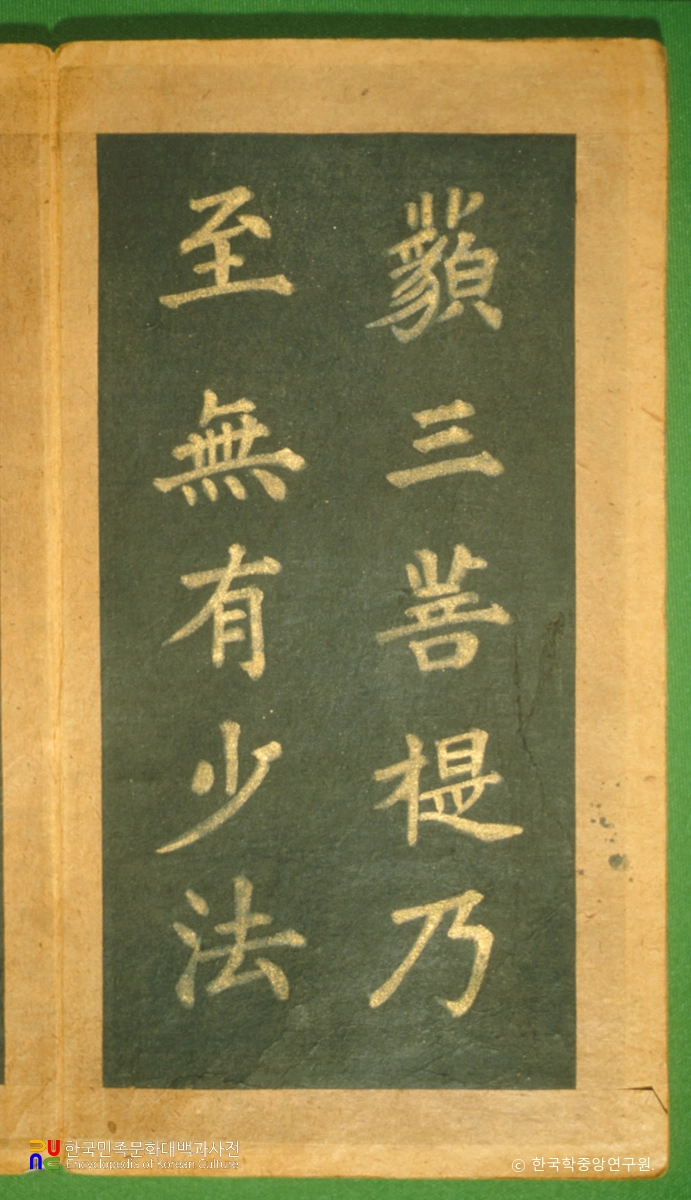 藐三菩提乃
至無有少法
한국민족문화대백과사전
Encyclopedia of Korean Culture
© 한국학중앙연구원